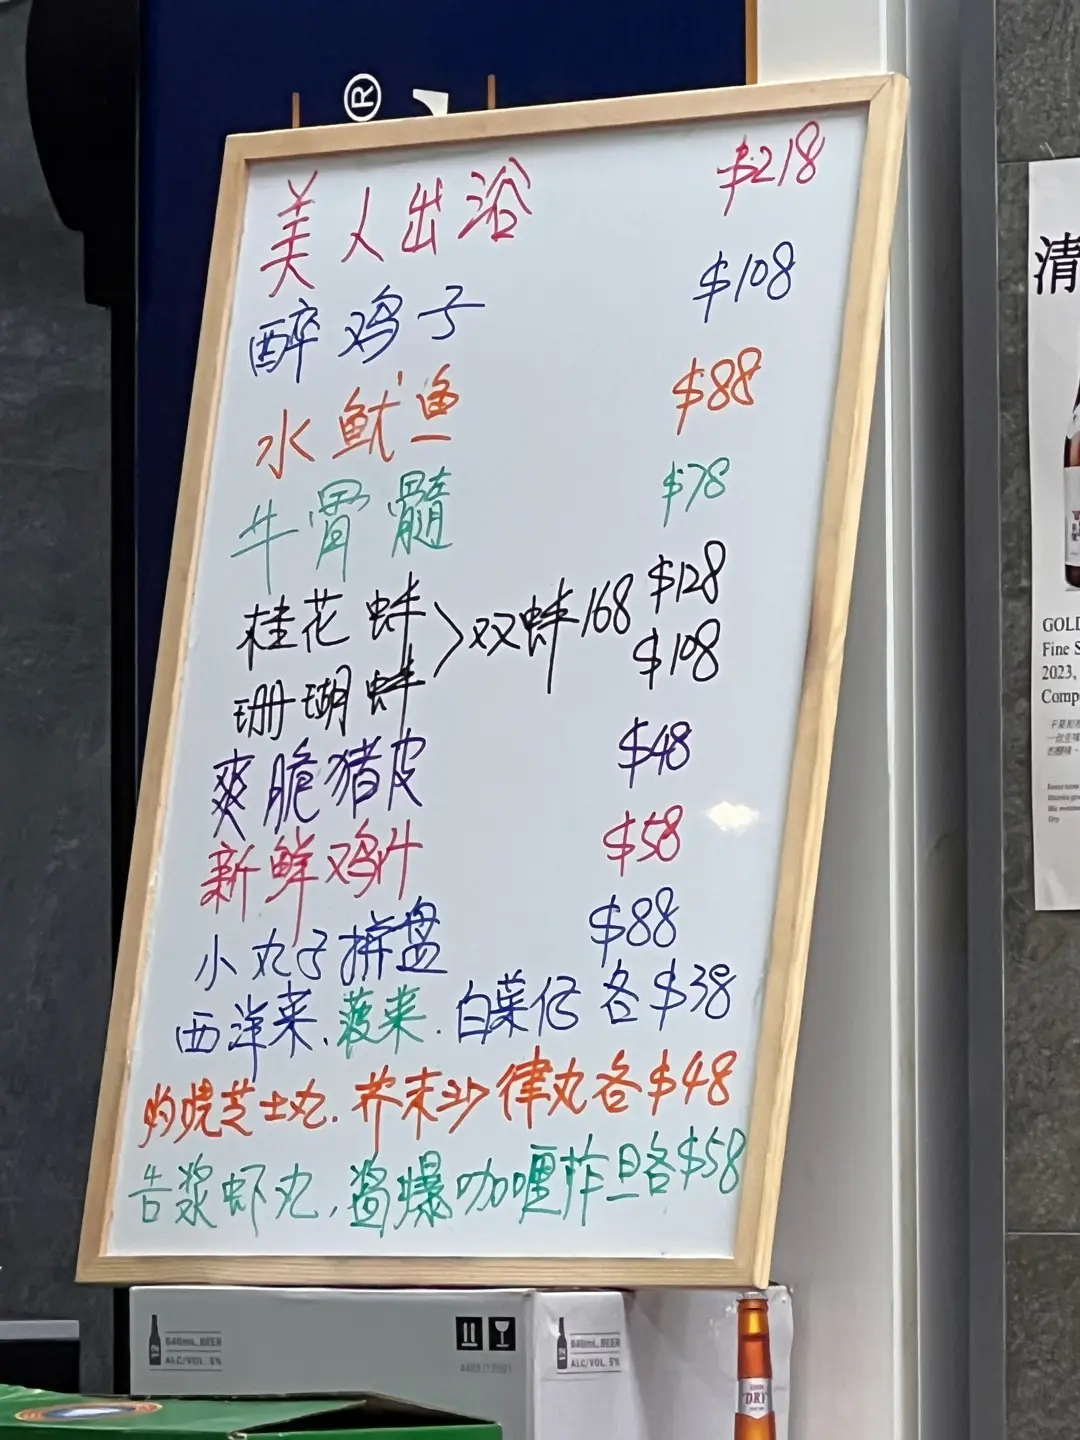 ®
美人出浴 $218
醉鸡子 $108
水鱿鱼 $88
牛骨髓 $78
桂花蚌 $128
双蚌168
珊瑚蚌 $108
爽脆猪皮 $48
新鲜鸡什 $58
小丸子拼盘 $88
西洋菜、菠菜.白菜仔 各$38
灼烧芝士丸.芥末沙律丸各$48
告浆虾丸,酱爆咖喱炸旦各$58
清
GOLD
Fine S
2023,
Comp
640mL BEER
ALC/VOL. 5%
640mL BEER
ALC/VOL. 5%
DRY